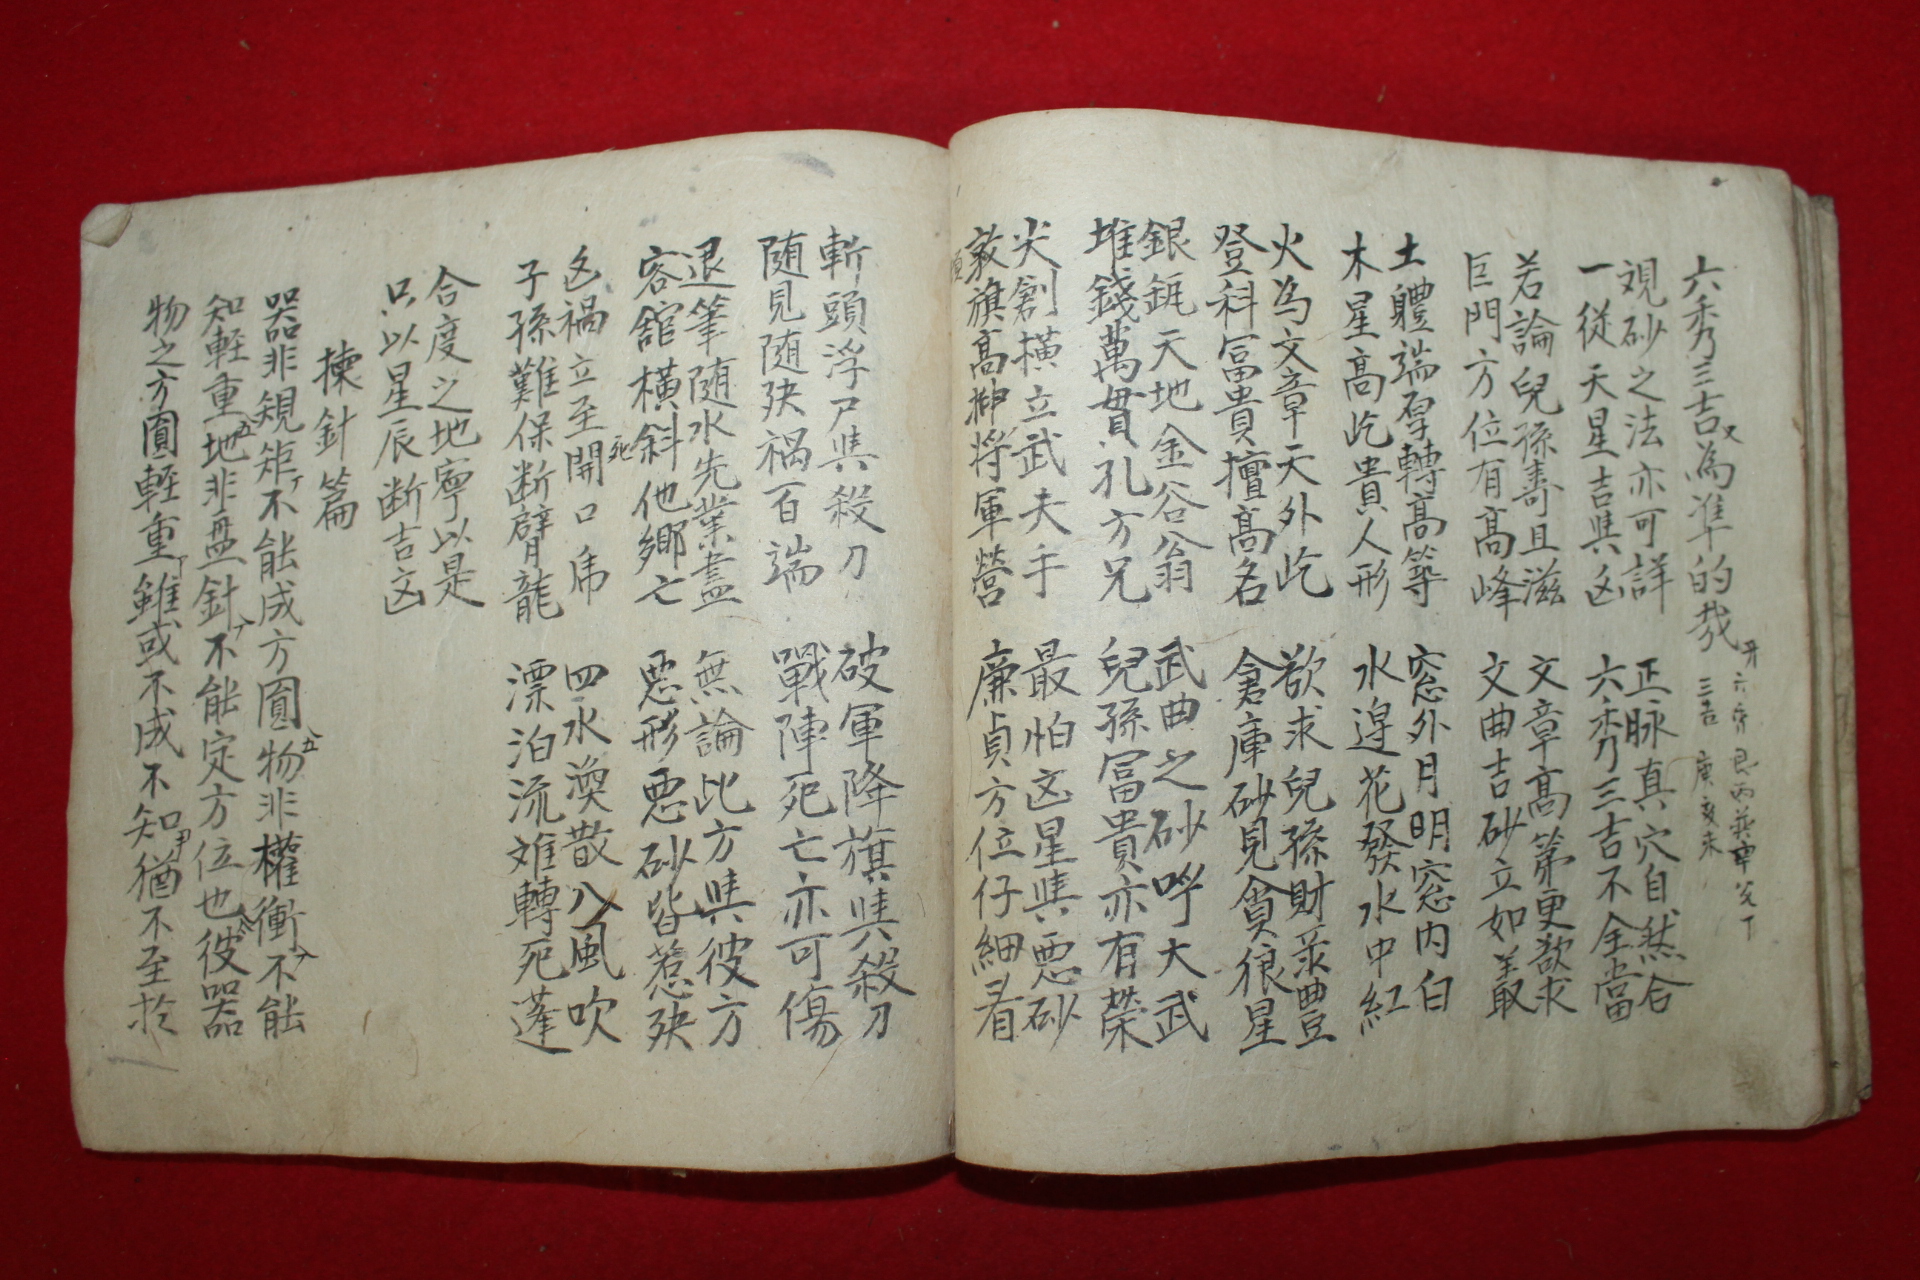 六秀三吉又為準的哉
六秀 艮丙巽辛兌丁
三吉 庚亥未
覌砂之法亦可詳 正脉真穴自然合
一從天星吉與凶 六秀三吉不全當
若論兒孫壽且滋 文章高第更欲求
巨門方位有高峰 文曲吉砂立如羣
土體端厚轉高等 窓外月明窓內白
木星高屹貴人形 水邉花發水中紅
火为文章天外屹 欲求兒孫財眾豊
登科冨貴擅高名 倉庫砂見貪狼星
銀瓶天地金谷翁 武曲之砂呼大武
堆錢萬貫孔方兄 兒孫冨貴亦有榮
尖創橫立武夫手 最怕凶星與惡砂
敦旗高揷將軍營 廉貞方位仔細看
斬頭浮尸與殺刀 破軍降旗與殺刀
随見随殃禍百端 戰陣死亡亦可傷
退筆随水先業盡 無論比方與彼方
客舘橫斜他鄉亡 惡形惡砂皆惹殃
凶禍立至開口虎 四水渙散八風吹
子孫難保断臂龍 漂泊流难轉死蓬
合度之地寧以是
只以星辰断吉凶
揀針篇
器非規矩不能成方圓物非權衡不能
知輕重地非盘針不能定方位也彼器
物之方圓輕重雖或不成不知猶不至於